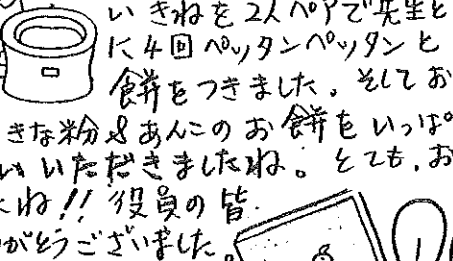 い きねを2人ペアで先生と
に4回ペッタンペッタンと
餅をつきました。そしてお
きな粉&あんこのお餅をいっぱ
いただきましたね。とても、お
たね!!役員の皆
がとうございました。